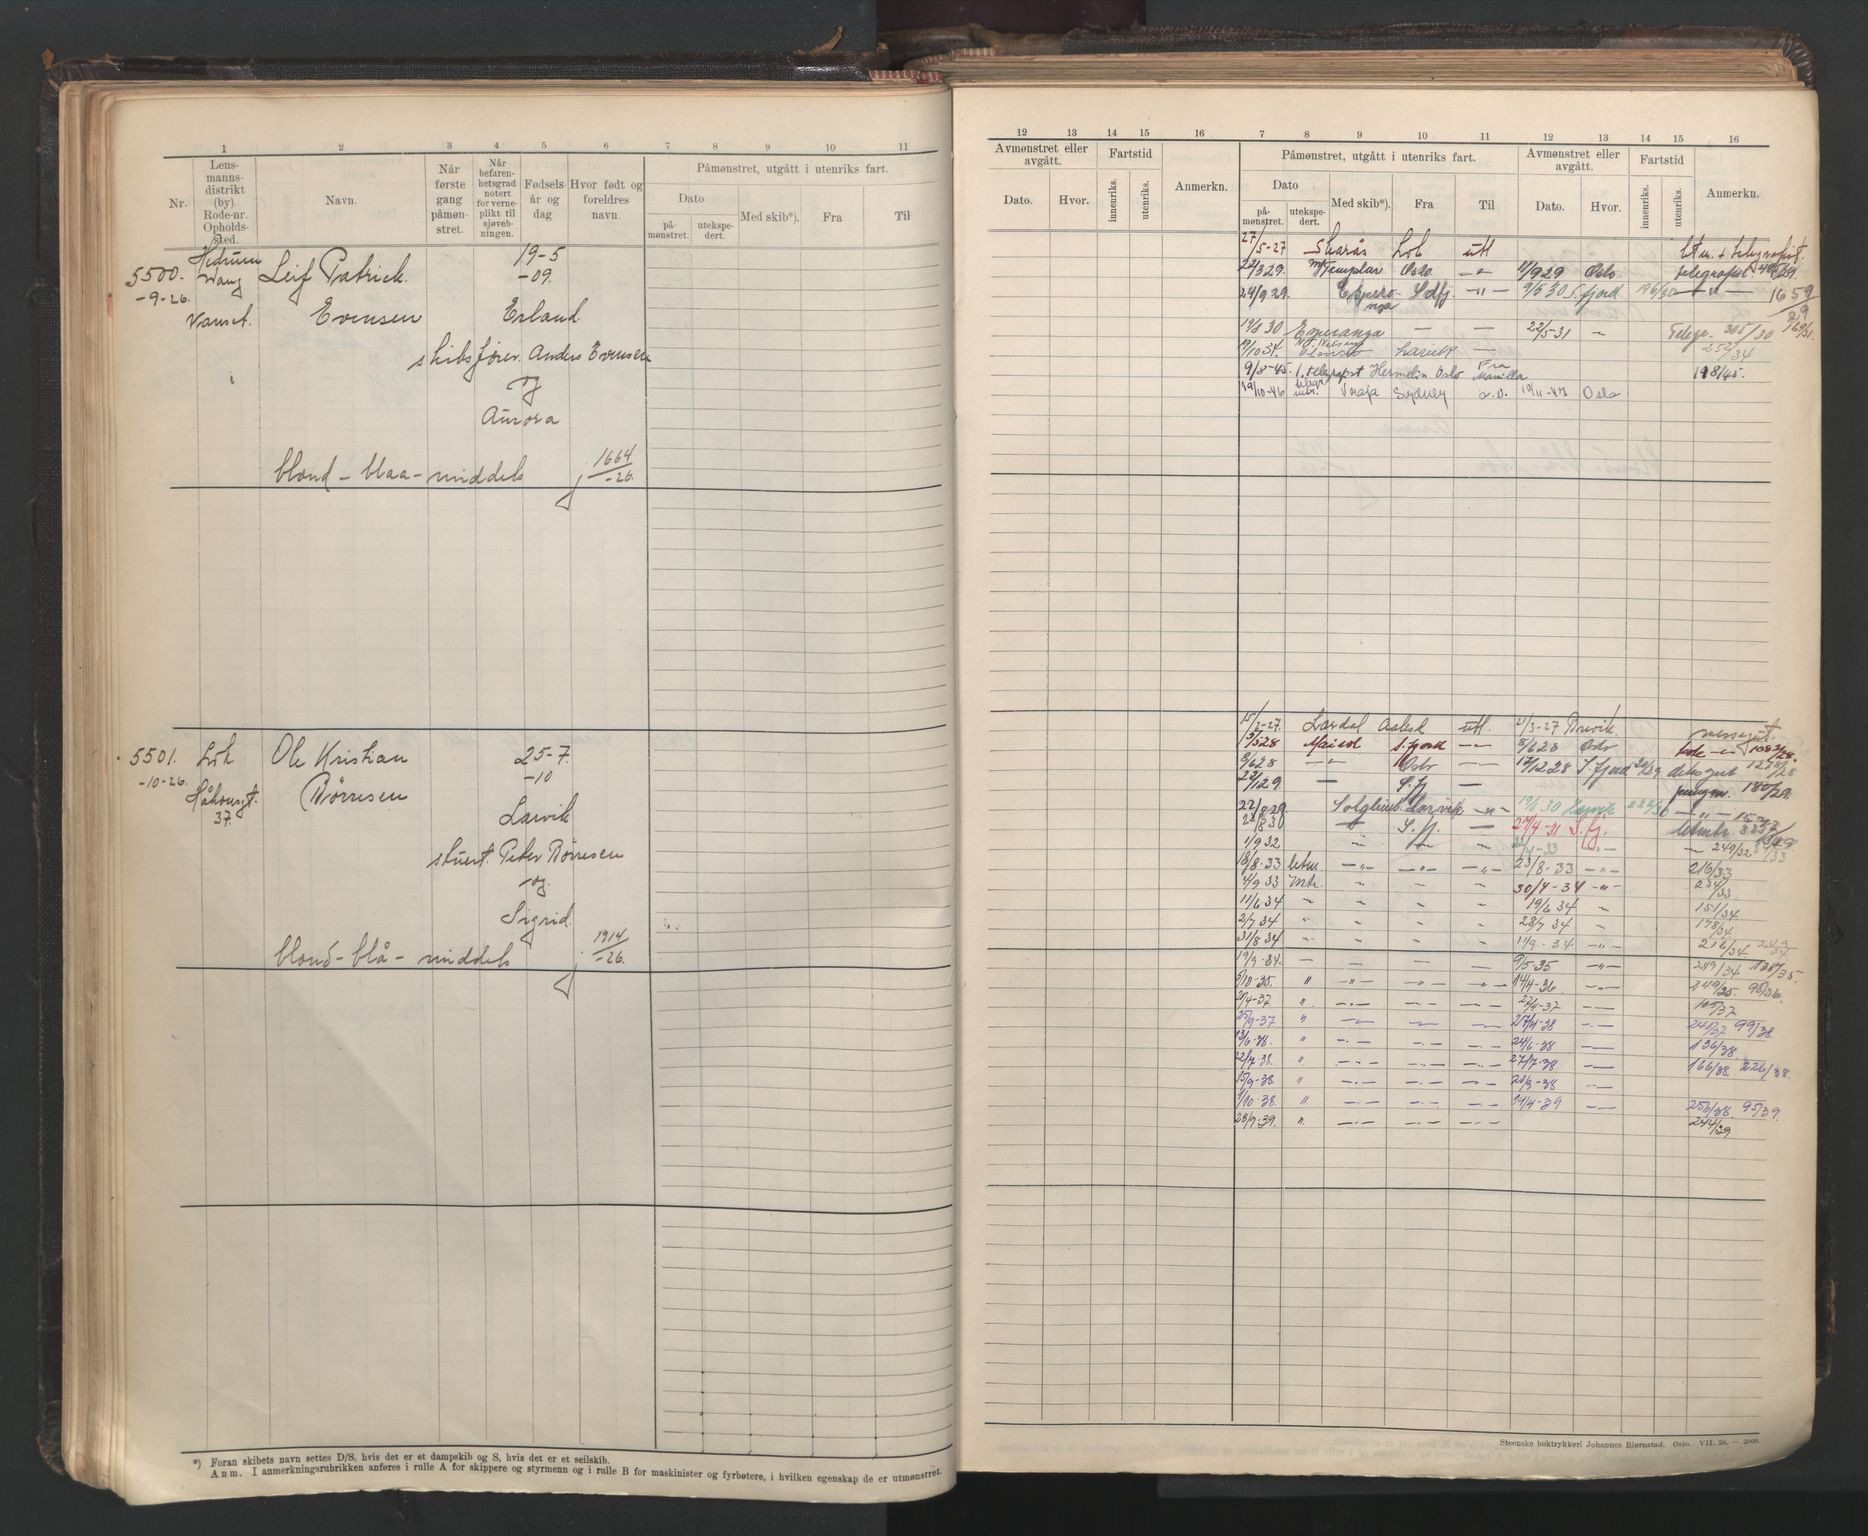 1 2 3 4 5 6 7 8 9 10 11
Nr. Lensmannsdistrikt (by). Rode-nr. Opholdssted. Navn. Når første gang påmønstret. Når befarenhetsgrad notert for verneplikt til sjøvebningen. Fødselsår og dag Hvor født og foreldres navn. Påmønstret, utgått i utenriks fart.
Dato Med skib*). Fra Til
påmønstret. utekspedert.
5500. Hedrum Leif Patrick 19-5
-9-26. Wang -09.
Vanset. Evensen Erland
skibsfører Anders Evensen
og
Aurora
blond - blaa - middels 1664/-26.
5501. Lvk Ole Kristian 25-7
-10-26. -10
Håkonsgt. Børresen
37. Larvik
stuert. Peter Børresen
og
Sigrid
blond - blå - middels 1914/-26.
*) Foran skibets navn settes D/S, hvis det er et dampskib og S, hvis det er et seilskib.
Anm. I anmerkningsrubrikken anføres i rulle A for skippere og styrmenn og i rulle B for maskinister og fyrbøtere, i hvilken egenskap de er utmønstret.
12 13 14 15 16 7 8 9 10 11 12 13 14 15 16
Avmønstret eller avgått. Fartstid Anmerkn. Påmønstret, utgått i utenriks fart. Avmønstret eller avgått. Fartstid Anmerkn.
Dato. Hvor. innenriks. utenriks. Dato Med skib*). Fra Til Dato. Hvor. innenriks. utenriks.
påmønstret. utekspedert.
27/5-27 Skarås Lvk utl
22/3 29. M/Templar Oslo. — 11/9 29 Oslo. telegrafist
24/9 29. Esperanza Sdfj. —"— 9/5 30 S.fjord 1659/29
19/8 30 Esperanza — — 22/5-31 Telegr. 205/30 169/31
19/10 34. Larvik — 252/34
9/8-45. 1. telegrafist Hermelin Oslo Fra Manilla 118/45.
19/10-46 Sydney 10/11-47 Oslo
15/2-27. Lardal Aalesd utl. 21/3-27 Brevik messegut.
19/5 28 S.fjord — 8/6 28 Oslo 1082/28.
8/6 28 —"— Oslo — 17/12 28 S.fjord deksgut 1278/28
22/1 29. — S.fj — jungm. 180/29.
22/8 29. Solglimt Larvik —"— 19/6 30 Larvik 222/30
22/8 30 — S.fj. — 27/4-31 S.fj.
1/9 32 — 249/32
18/8-33 —"— —"— —"— 23/8-33 —"— 216/33
4/9 33 Mtr. " " " 30/4-34 —"— 234/33
11/6 34 " " " " 19/6 34 " 151/34
2/7 34 " " " " 28/7 34 " 178/34
31/8 34 " " " " 11/9-34 —"— 216/34
19/9-34. — — — — 9/5-35 —"— 249/34 138/35.
5/10-35. " —"— —"— —"— 14/4-36 —"— 249/35 95/36.
21/4-37. " — — — 27/4-37 — 105/37
25/9-37 " — — — 25/4-38 — 241/37 99/38.
13/6-38. " — — — 24/6-38 — 136/38.
22/7-38. " — — — 27/7-38 — 166/38. 226/38.
15/9-38. " — — — 20/9-38 —
1/10-38. " — — — 14/4-39 — 253/38. 95/39.
28/9-39. " — — — 244/39
Steenske boktrykkeri Johannes Bjørnstad. Oslo. VII. 26. — 2000.